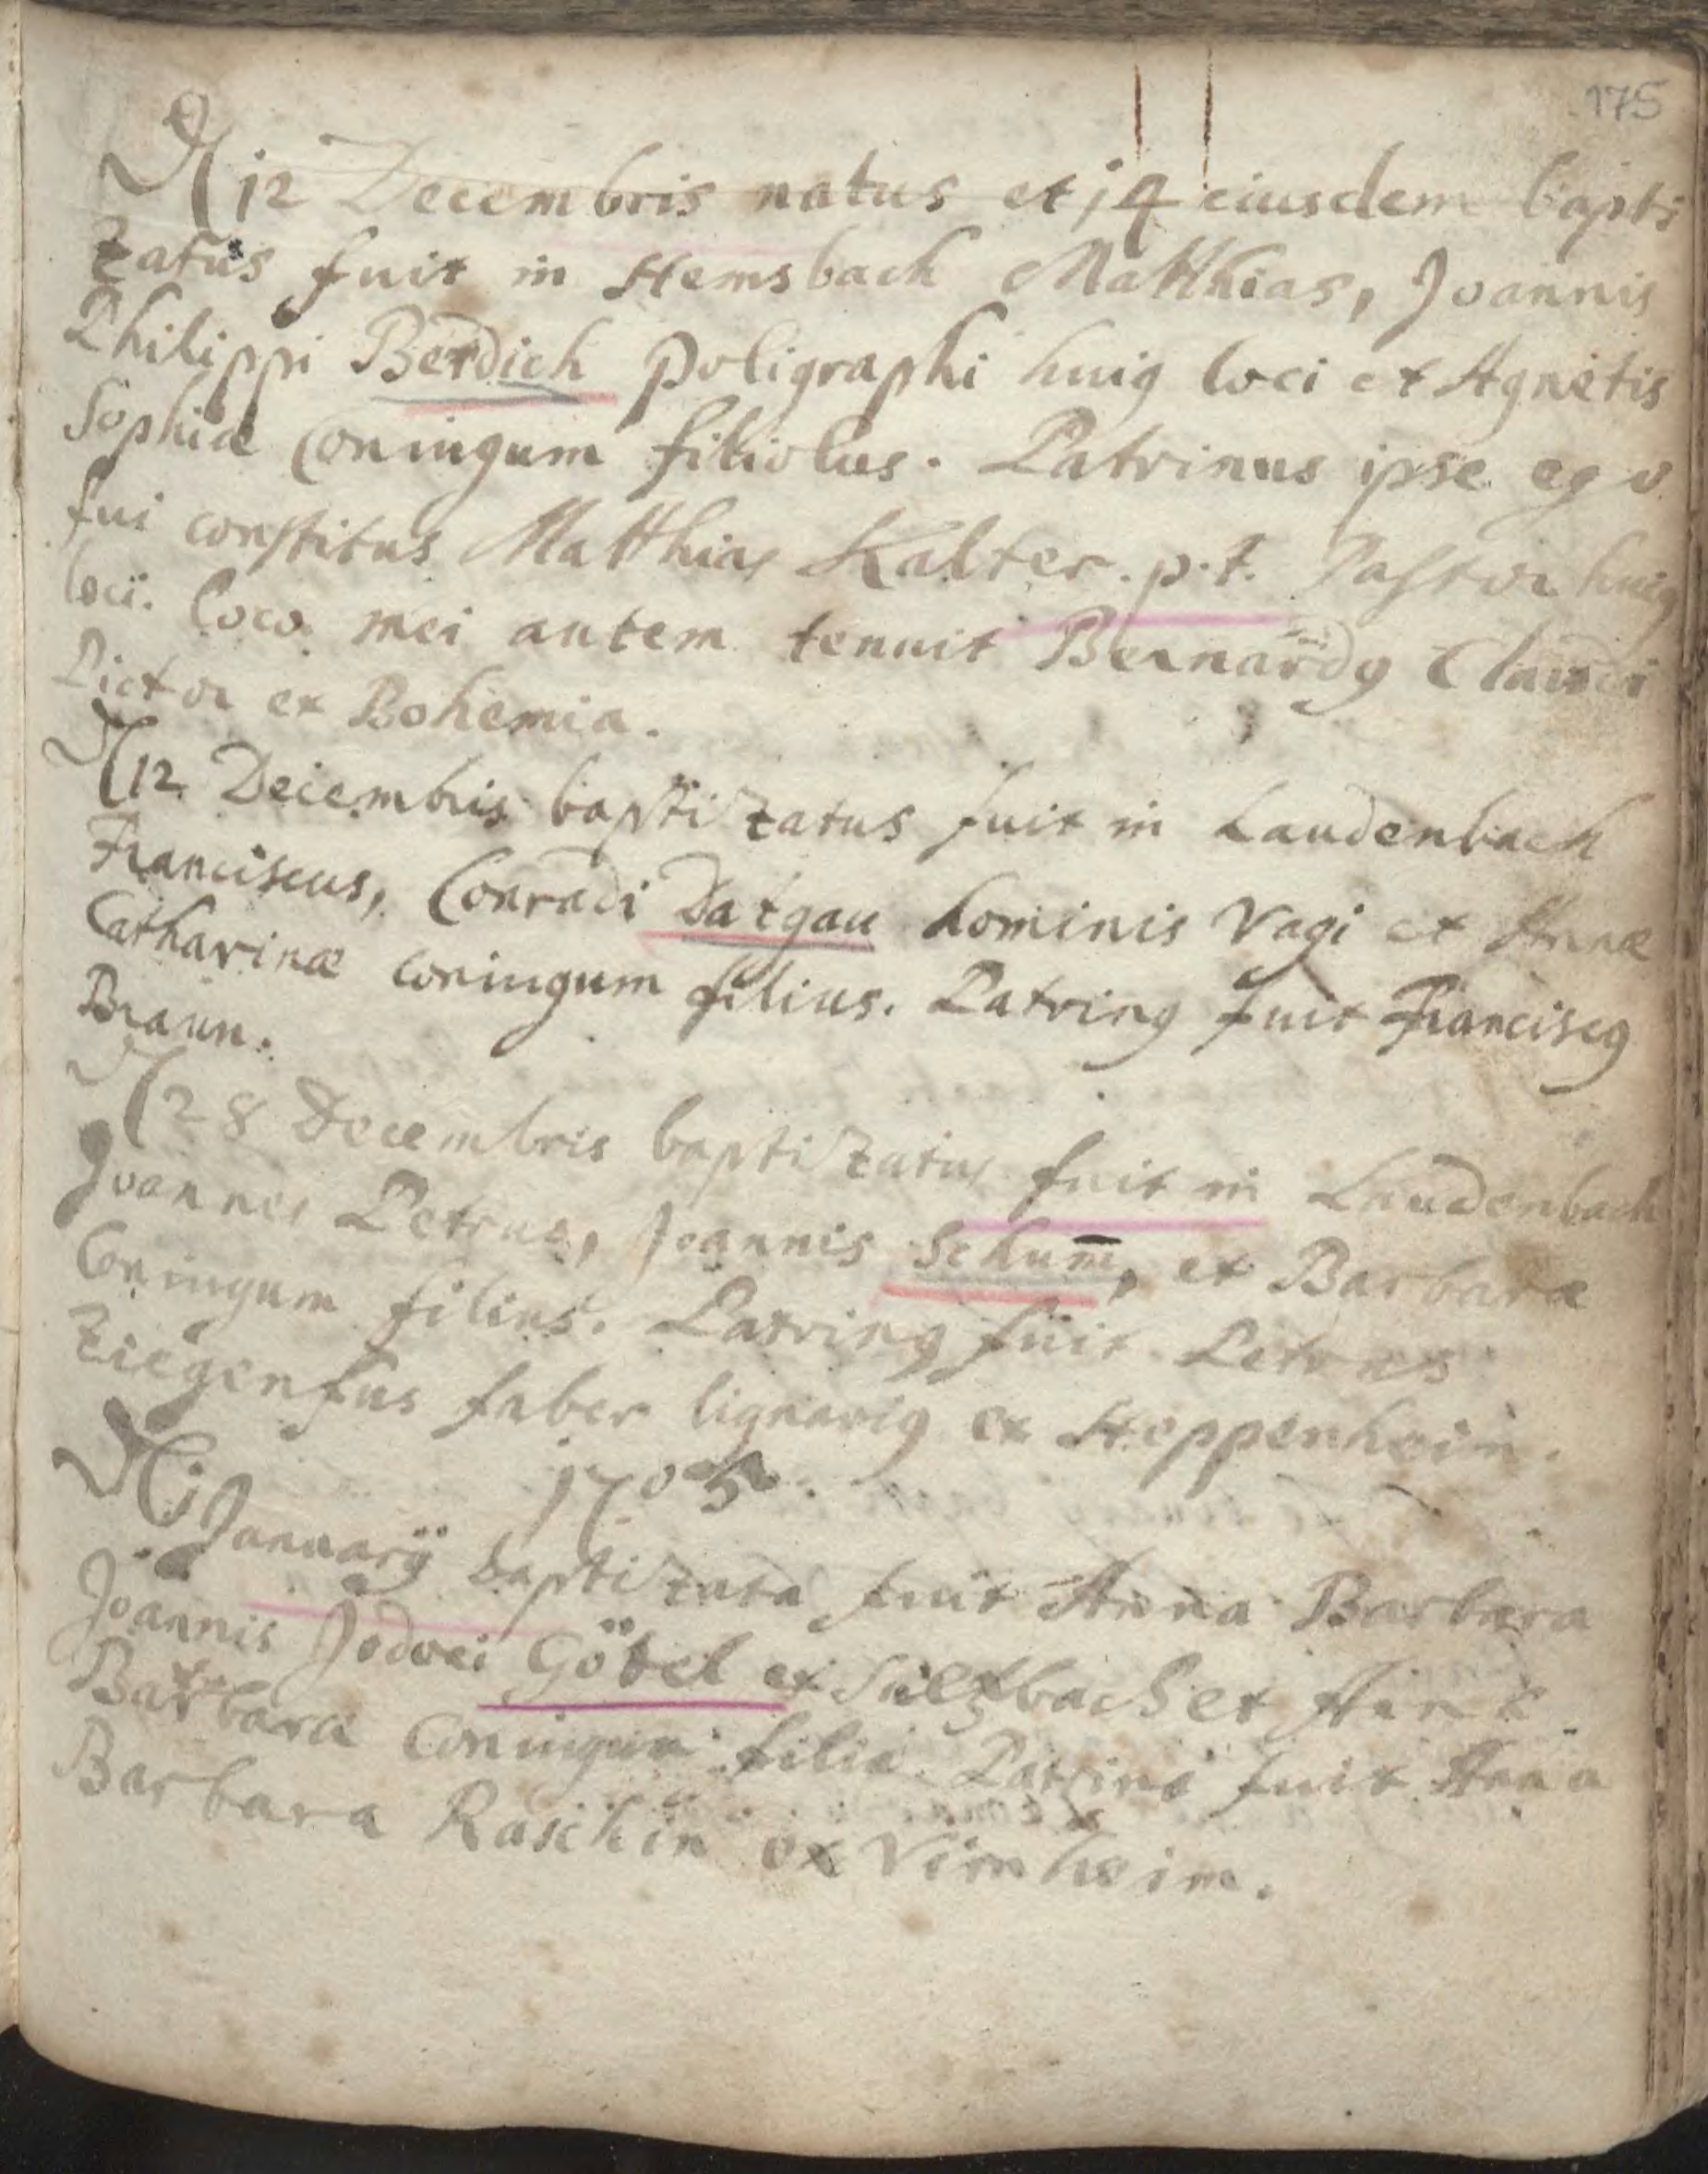 175
12 Decembris natus et 14 eiusdem bapti
zatus fuit in Hemsbach Matthias, Joannis
Philippi Berdich Poligraphi huig loci et Agnetis
Sophiæ Coniugum filiolus. Patrinus ipse ego
fui constitus Matthias Kalter. p.t. Pastor huig
loci. Loco mei autem tenuit Bernardg Claudi
Pictor ex Bohemia.
12 Decembris baptizatus fuit in Laudenbach
Franciscus, Conradi Datgau hominis vagi et Annæ
Catharinæ coniugum filius. Patring fuit Franciscg
Braun.
28 Decembris baptizatus fuit in Laudenbach
Joannes Petrus, Joannis Schum̅, et Barbaræ
Coniugum filius. Patring fuit Petrus
Ziegenfus faber lignarig ex Heppenheim.
1705.
1 Januarÿ baptizata fuit Anna Barbara
Joannis Jodoci Götel ex Sultzbach et Annæ
Barbaræ Coniugum filia. Patrina fuit Anna
Barbara Raschin ex Virnheim.